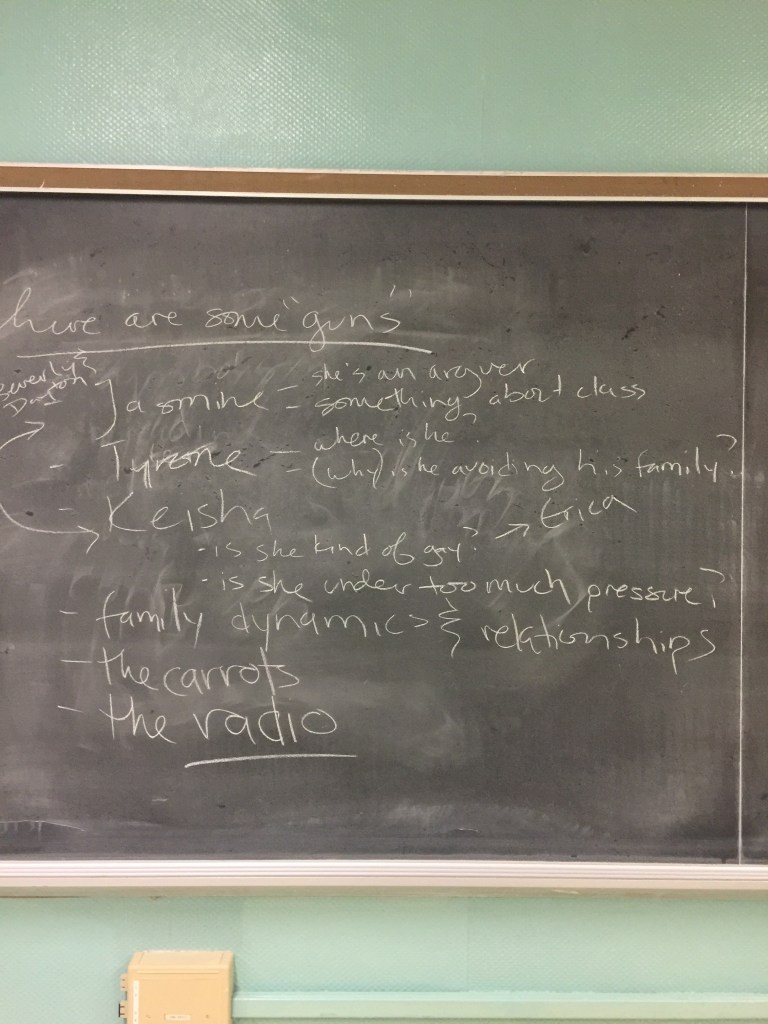 here are some "guns"
Beverly &
Dayton
Jasmine - she's an arguer
- something about class
- Tyrone - where is he?
- (why) is he avoiding his family?
- Keisha → Erica
- is she kind of gay?
- is she under too much pressure?
- family dynamics & relationships
- the carrots
- the radio